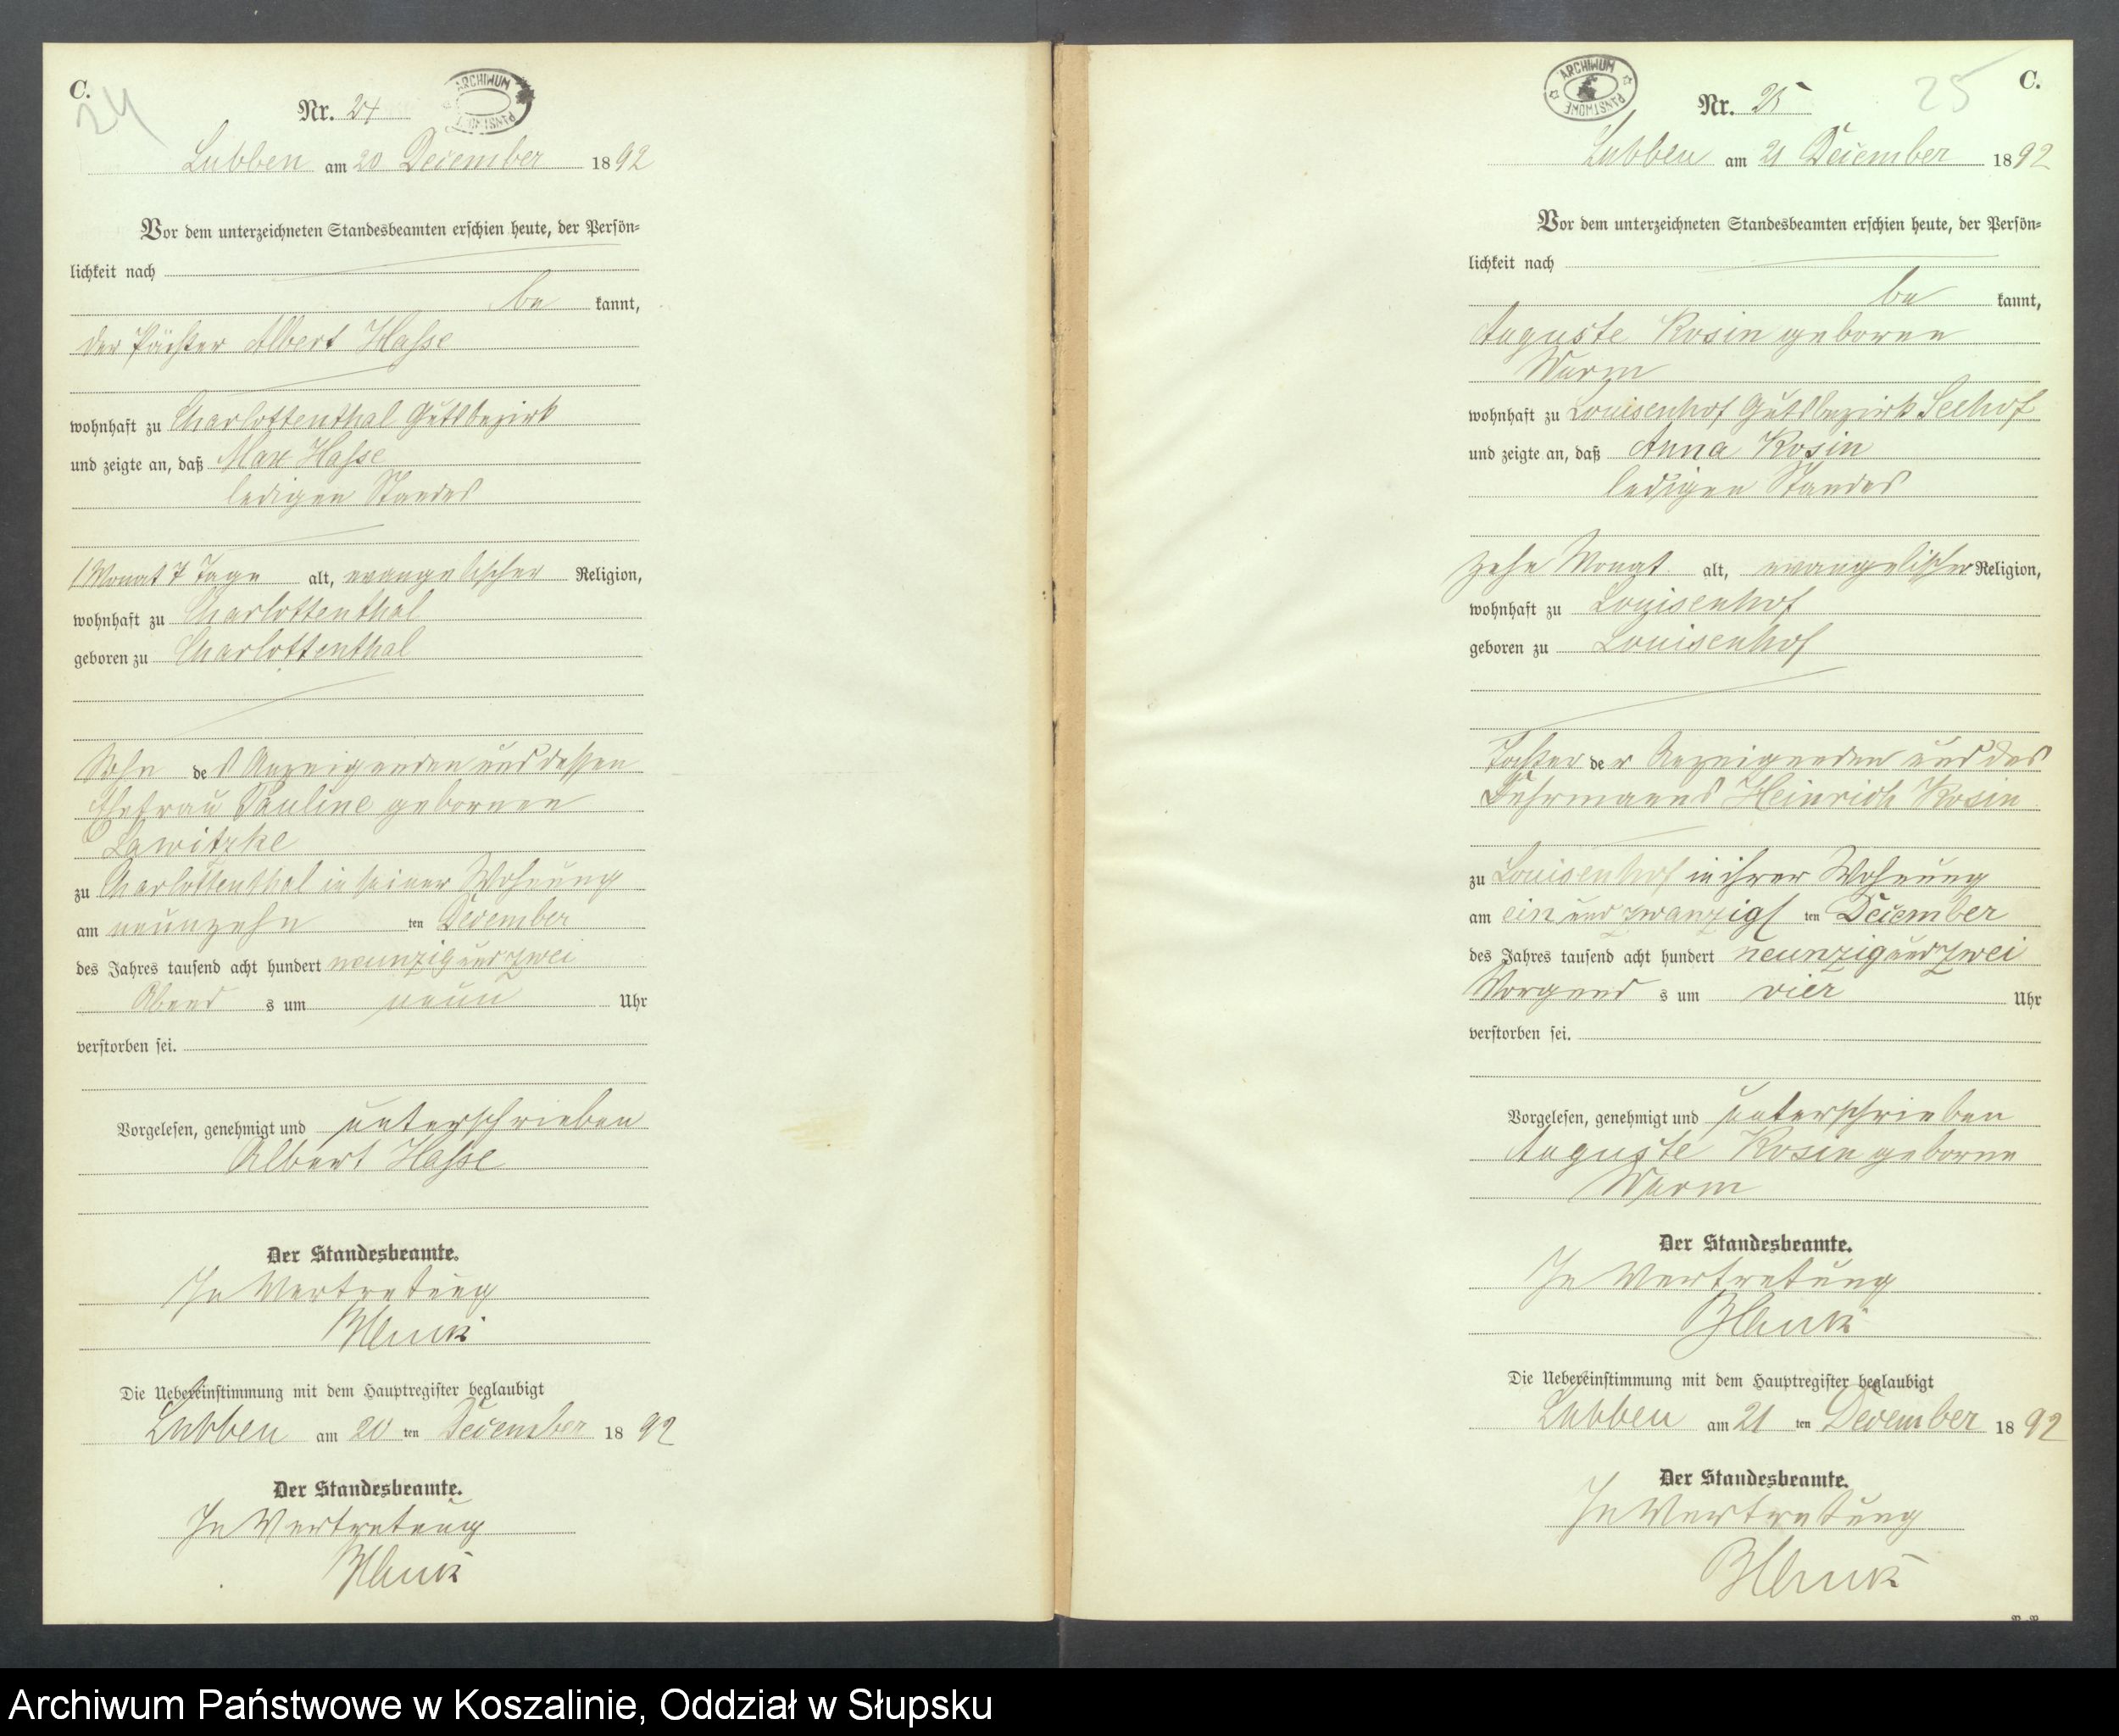 C.
24
Nr. 24
ARCHIWUM
PAŃSTWOWE
Lubben am 20 December 1892
Vor dem unterzeichneten Standesbeamten erschien heute, der Persön=
lichkeit nach
be kannt,
der Pächter Albert Hasse
wohnhaft zu Charlottenthal Gutsbezirk
und zeigte an, daß Max Hasse
ledigen Standes
1 Monat 7 Tage alt, evangelischer Religion,
wohnhaft zu Charlottenthal
geboren zu Charlottenthal
Sohn des Anzeigenden und dessen
Ehefrau Pauline geborenen
Lawitzke
zu Charlottenthal in seiner Wohnung
am neunzehn ten December
des Jahres tausend acht hundert neunzig und zwei
Abend s um neun Uhr
verstorben sei.
Vorgelesen, genehmigt und unterschrieben
Albert Hasse
Der Standesbeamte.
In Vertretung
Die Uebereinstimmung mit dem Hauptregister beglaubigt
Lubben am 20 ten December 1892
Der Standesbeamte.
In Vertretung
C.
25
Nr. 25
ARCHIWUM
PAŃSTWOWE
Lubben am 21 December 1892
Vor dem unterzeichneten Standesbeamten erschien heute, der Persön=
lichkeit nach
be kannt,
Auguste Rosin geborne
Wurm
wohnhaft zu Louisenhof Gutsbezirk Seehof
und zeigte an, daß Anna Rosin
ledigen Standes
Zehn Monat alt, evangelischer Religion,
wohnhaft zu Louisenhof
geboren zu Louisenhof
Tochter der Anzeigenden und des
Fuhrmanns Heinrich Rosin
zu Louisenhof in ihrer Wohnung
am ein und zwanzigs ten December
des Jahres tausend acht hundert neunzig und zwei
Morgend s um vier Uhr
verstorben sei.
Vorgelesen, genehmigt und unterschrieben
Auguste Rosin geborne
Wurm
Der Standesbeamte.
In Vertretung
Die Uebereinstimmung mit dem Hauptregister beglaubigt
Lubben am 21 ten December 1892
Der Standesbeamte.
In Vertretung
Archiwum Państwowe w Koszalinie, Oddział w Słupsku